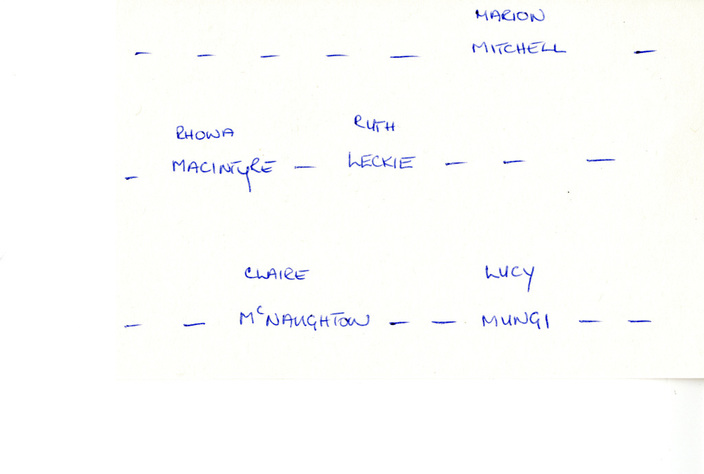 MARION
— — — — — MITCHELL —
RHONA RUTH
— MACINTYRE — LECKIE — — —
CLAIRE LUCY
— — McNAUGHTON — — MUNGI — —